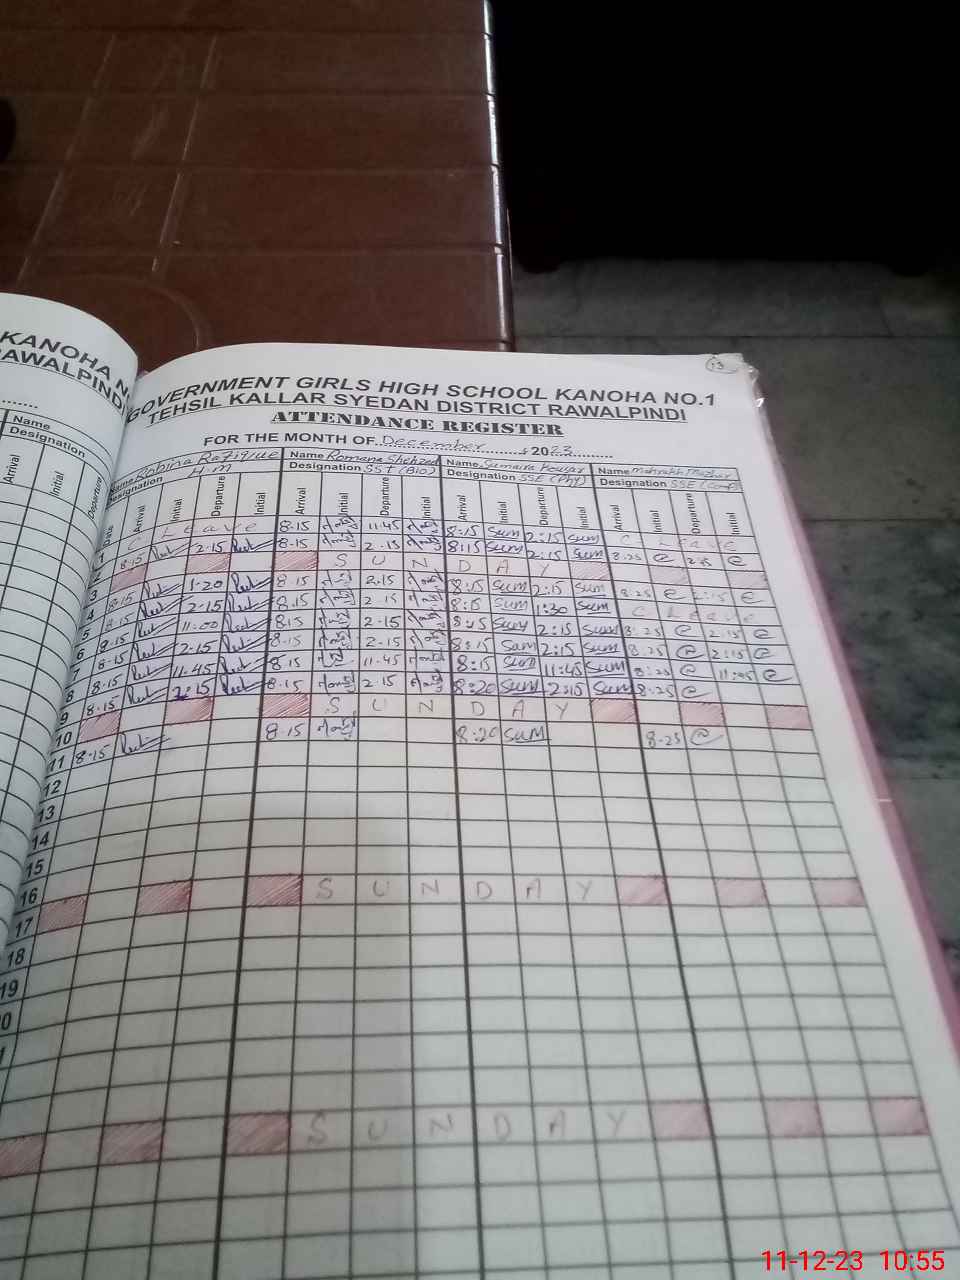 KANOHA N
RAWALPINDI
Name
Designation
Arrival
Initial
Departure
13
GOVERNMENT GIRLS HIGH SCHOOL KANOHA NO.1
TEHSIL KALLAR SYEDAN DISTRICT RAWALPINDI
ATTENDANCE REGISTER
FOR THE MONTH OF December 2023
Name Robina Rafique Name Romana Shehzad Name Sumaira Kousar Name Mahrukh
Designation H.M Designation SST (Bio) Designation SSE (Phy) Designation SSE (Comp)
Date Arrival Initial Departure Initial Arrival Initial Departure Initial Arrival Initial Departure Initial Arrival Initial Departure Initial
1 C Leave 8.15 11.45 8:15 Sum 2:15 Sum C Leave
2 8.15 2.15 8.15 2.15 8:15 Sum 2:15 Sum 8.25 @ 2.15 @
3 S U N D A Y
4 8.15 1.20 8.15 2.15 8:15 Sum 2:15 Sum 8.25 @ 2.15 @
5 8.15 2.15 8.15 2.15 8:15 Sum 1:30 Sum C Leave
6 8.15 11.00 8.15 2.15 8:15 Sum 2:15 Sum 8.25 @ 2.15 @
7 8.15 2.15 8.15 2.15 8:15 Sum 2:15 Sum 8.25 @ 2:15 @
8 8.15 11.45 8.15 11.45 8:15 Sum 11:45 Sum 8:25 @ 11:45 @
9 8.15 2.15 8.15 2.15 8:20 Sum 2:15 Sum 8:25 @
10 S U N D A Y
11 8.15 8.15 8:20 Sum 8.25 @
12
13
14
15
16
17 S U N D A Y
18
19
0
1
S U N D A Y
11-12-23 10:55